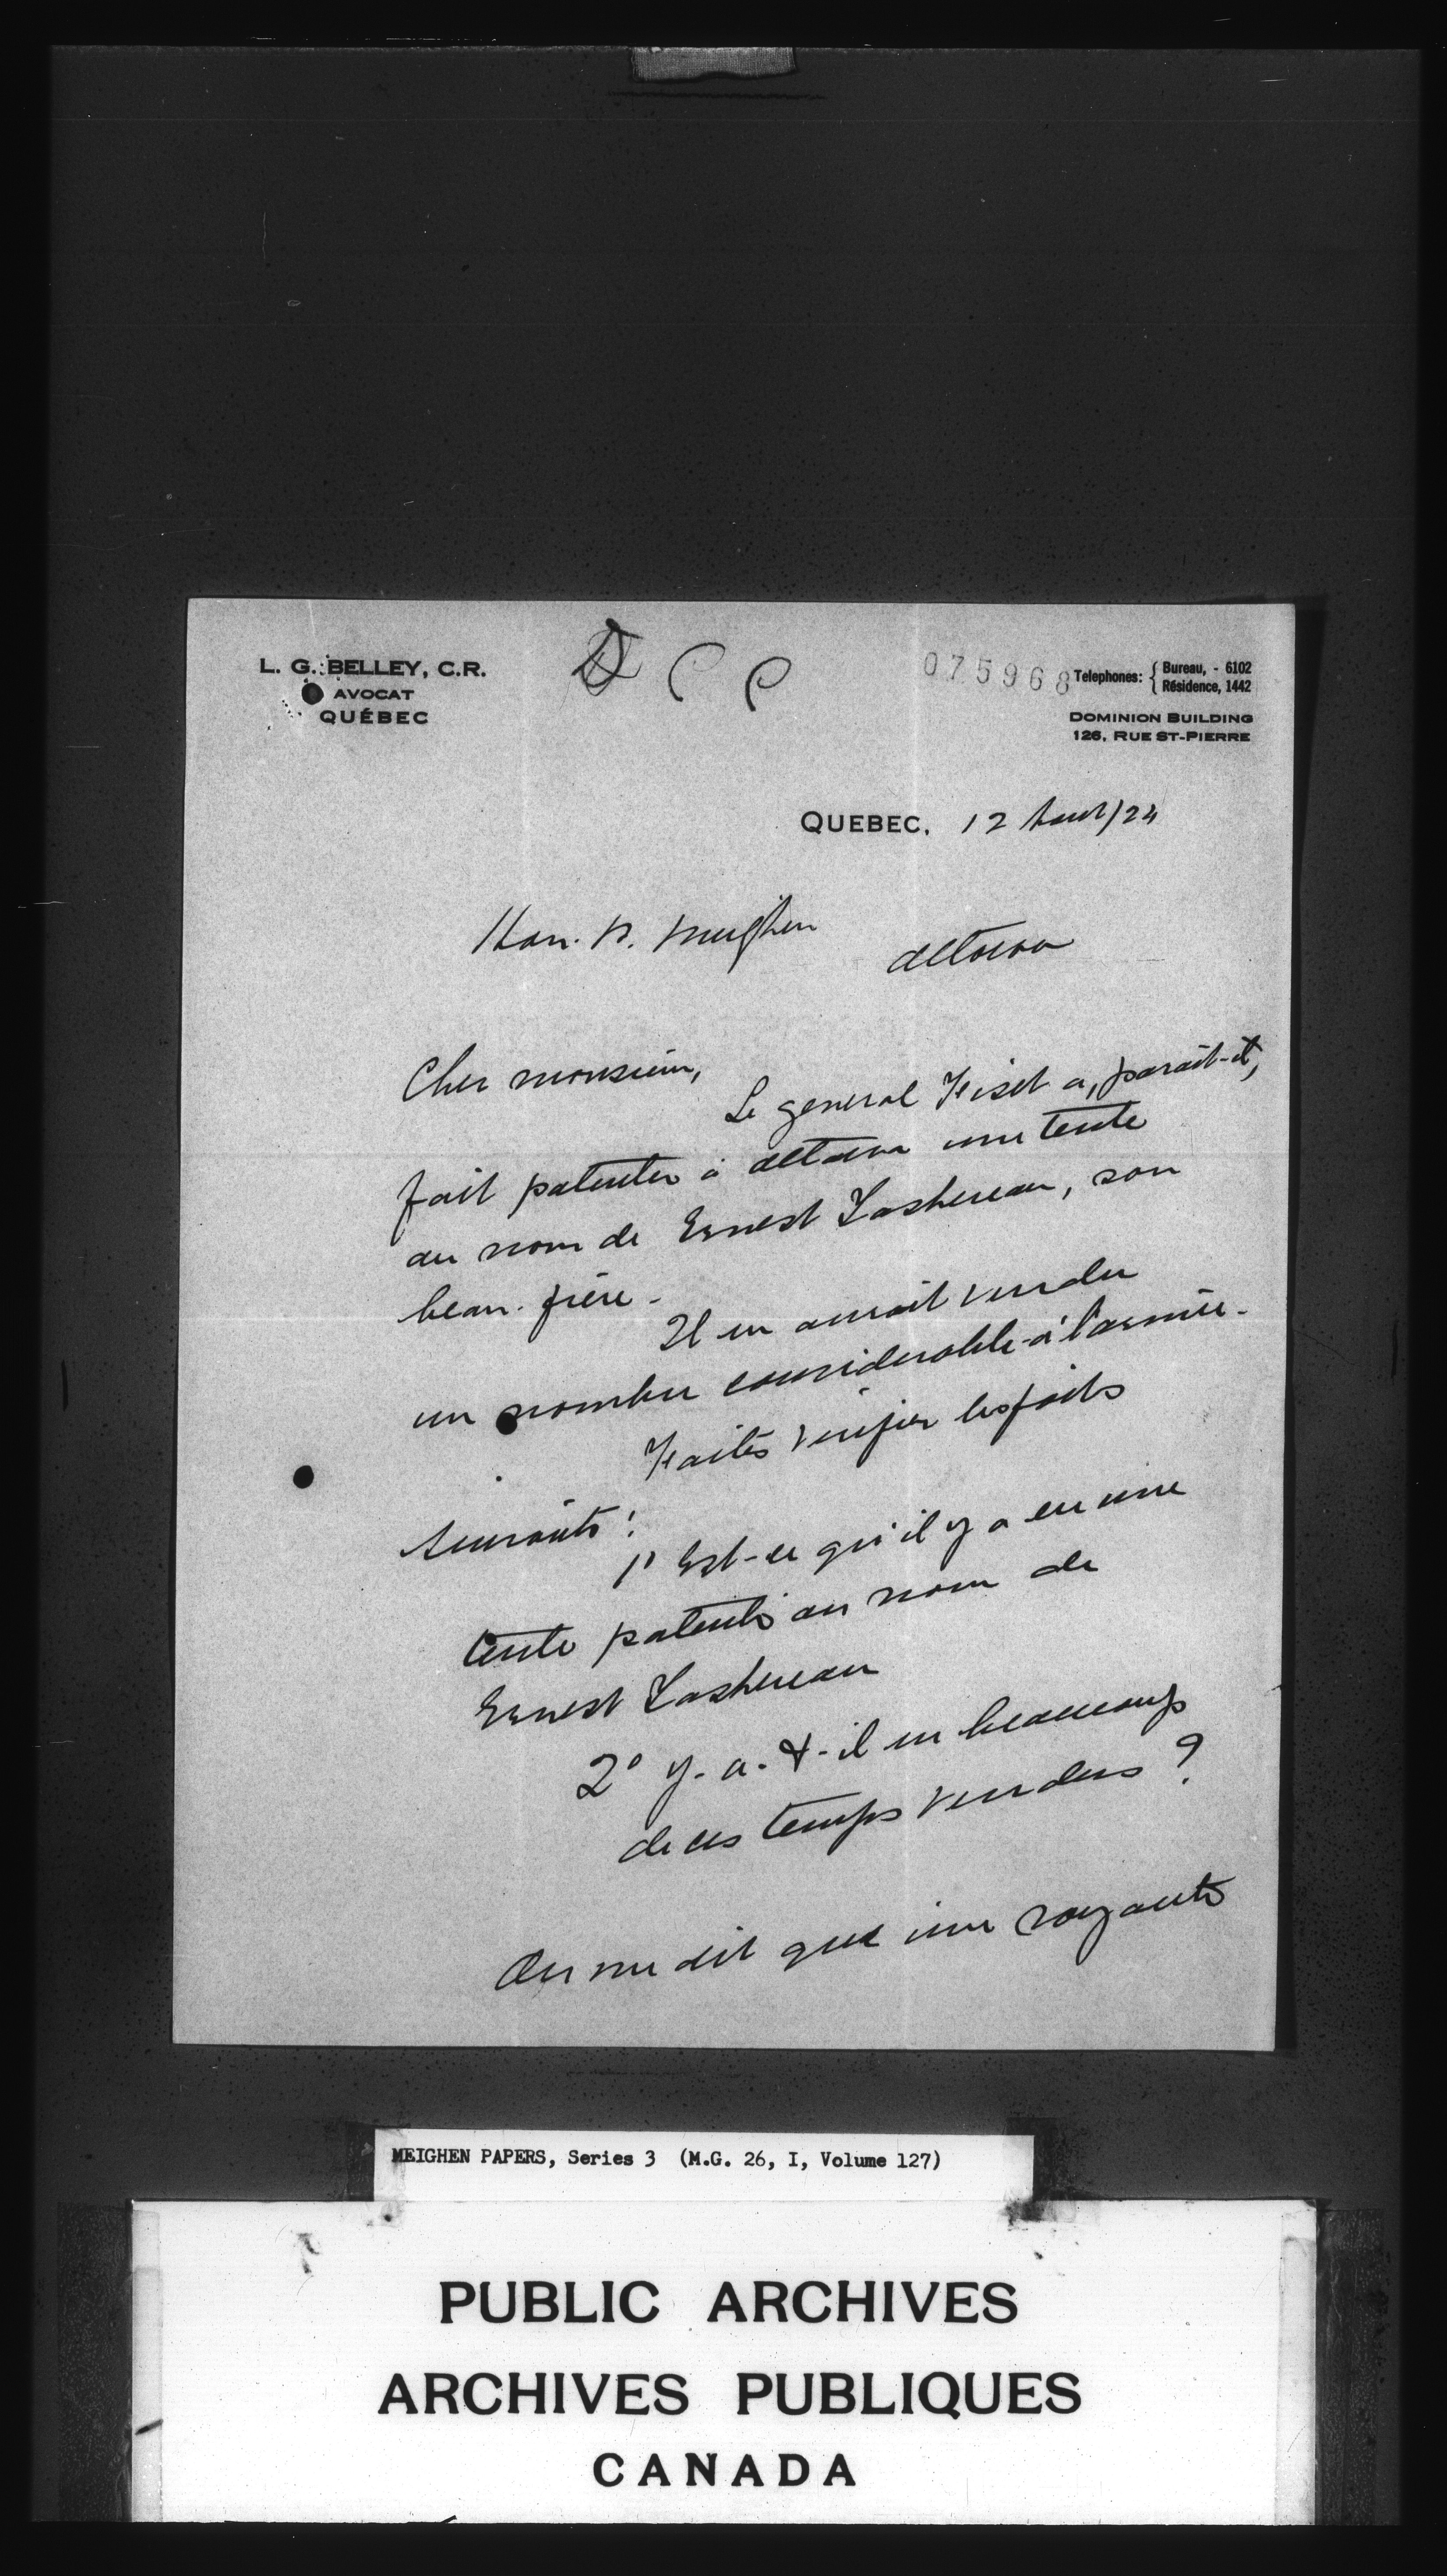 L. G. BELLEY, C.R.
AVOCAT
QUÉBEC
D C C
075968
Telephones: { Bureau, - 6102
Résidence, 1442
DOMINION BUILDING
126, RUE ST-PIERRE
QUEBEC, 12 Aout/24
Hon. A. Meighen
Ottawa
Cher monsieur,
Le general Fiset a, parait-il,
fait patenter à Ottawa une tente
au nom de Ernest Taschereau, son
beau-frère -
Il en aurait vendu
un nombre considerable à l'armée -
Faites vérifier les faits
suivants :
1° Est-ce qu'il y a eu une
tente patentée au nom de
Ernest Taschereau
2° Y-a-t-il eu beaucoup
de ces temps vendus ?
On me dit que une royauté
MEIGHEN PAPERS, Series 3 (M.G. 26, I, Volume 127)
PUBLIC ARCHIVES
ARCHIVES PUBLIQUES
CANADA